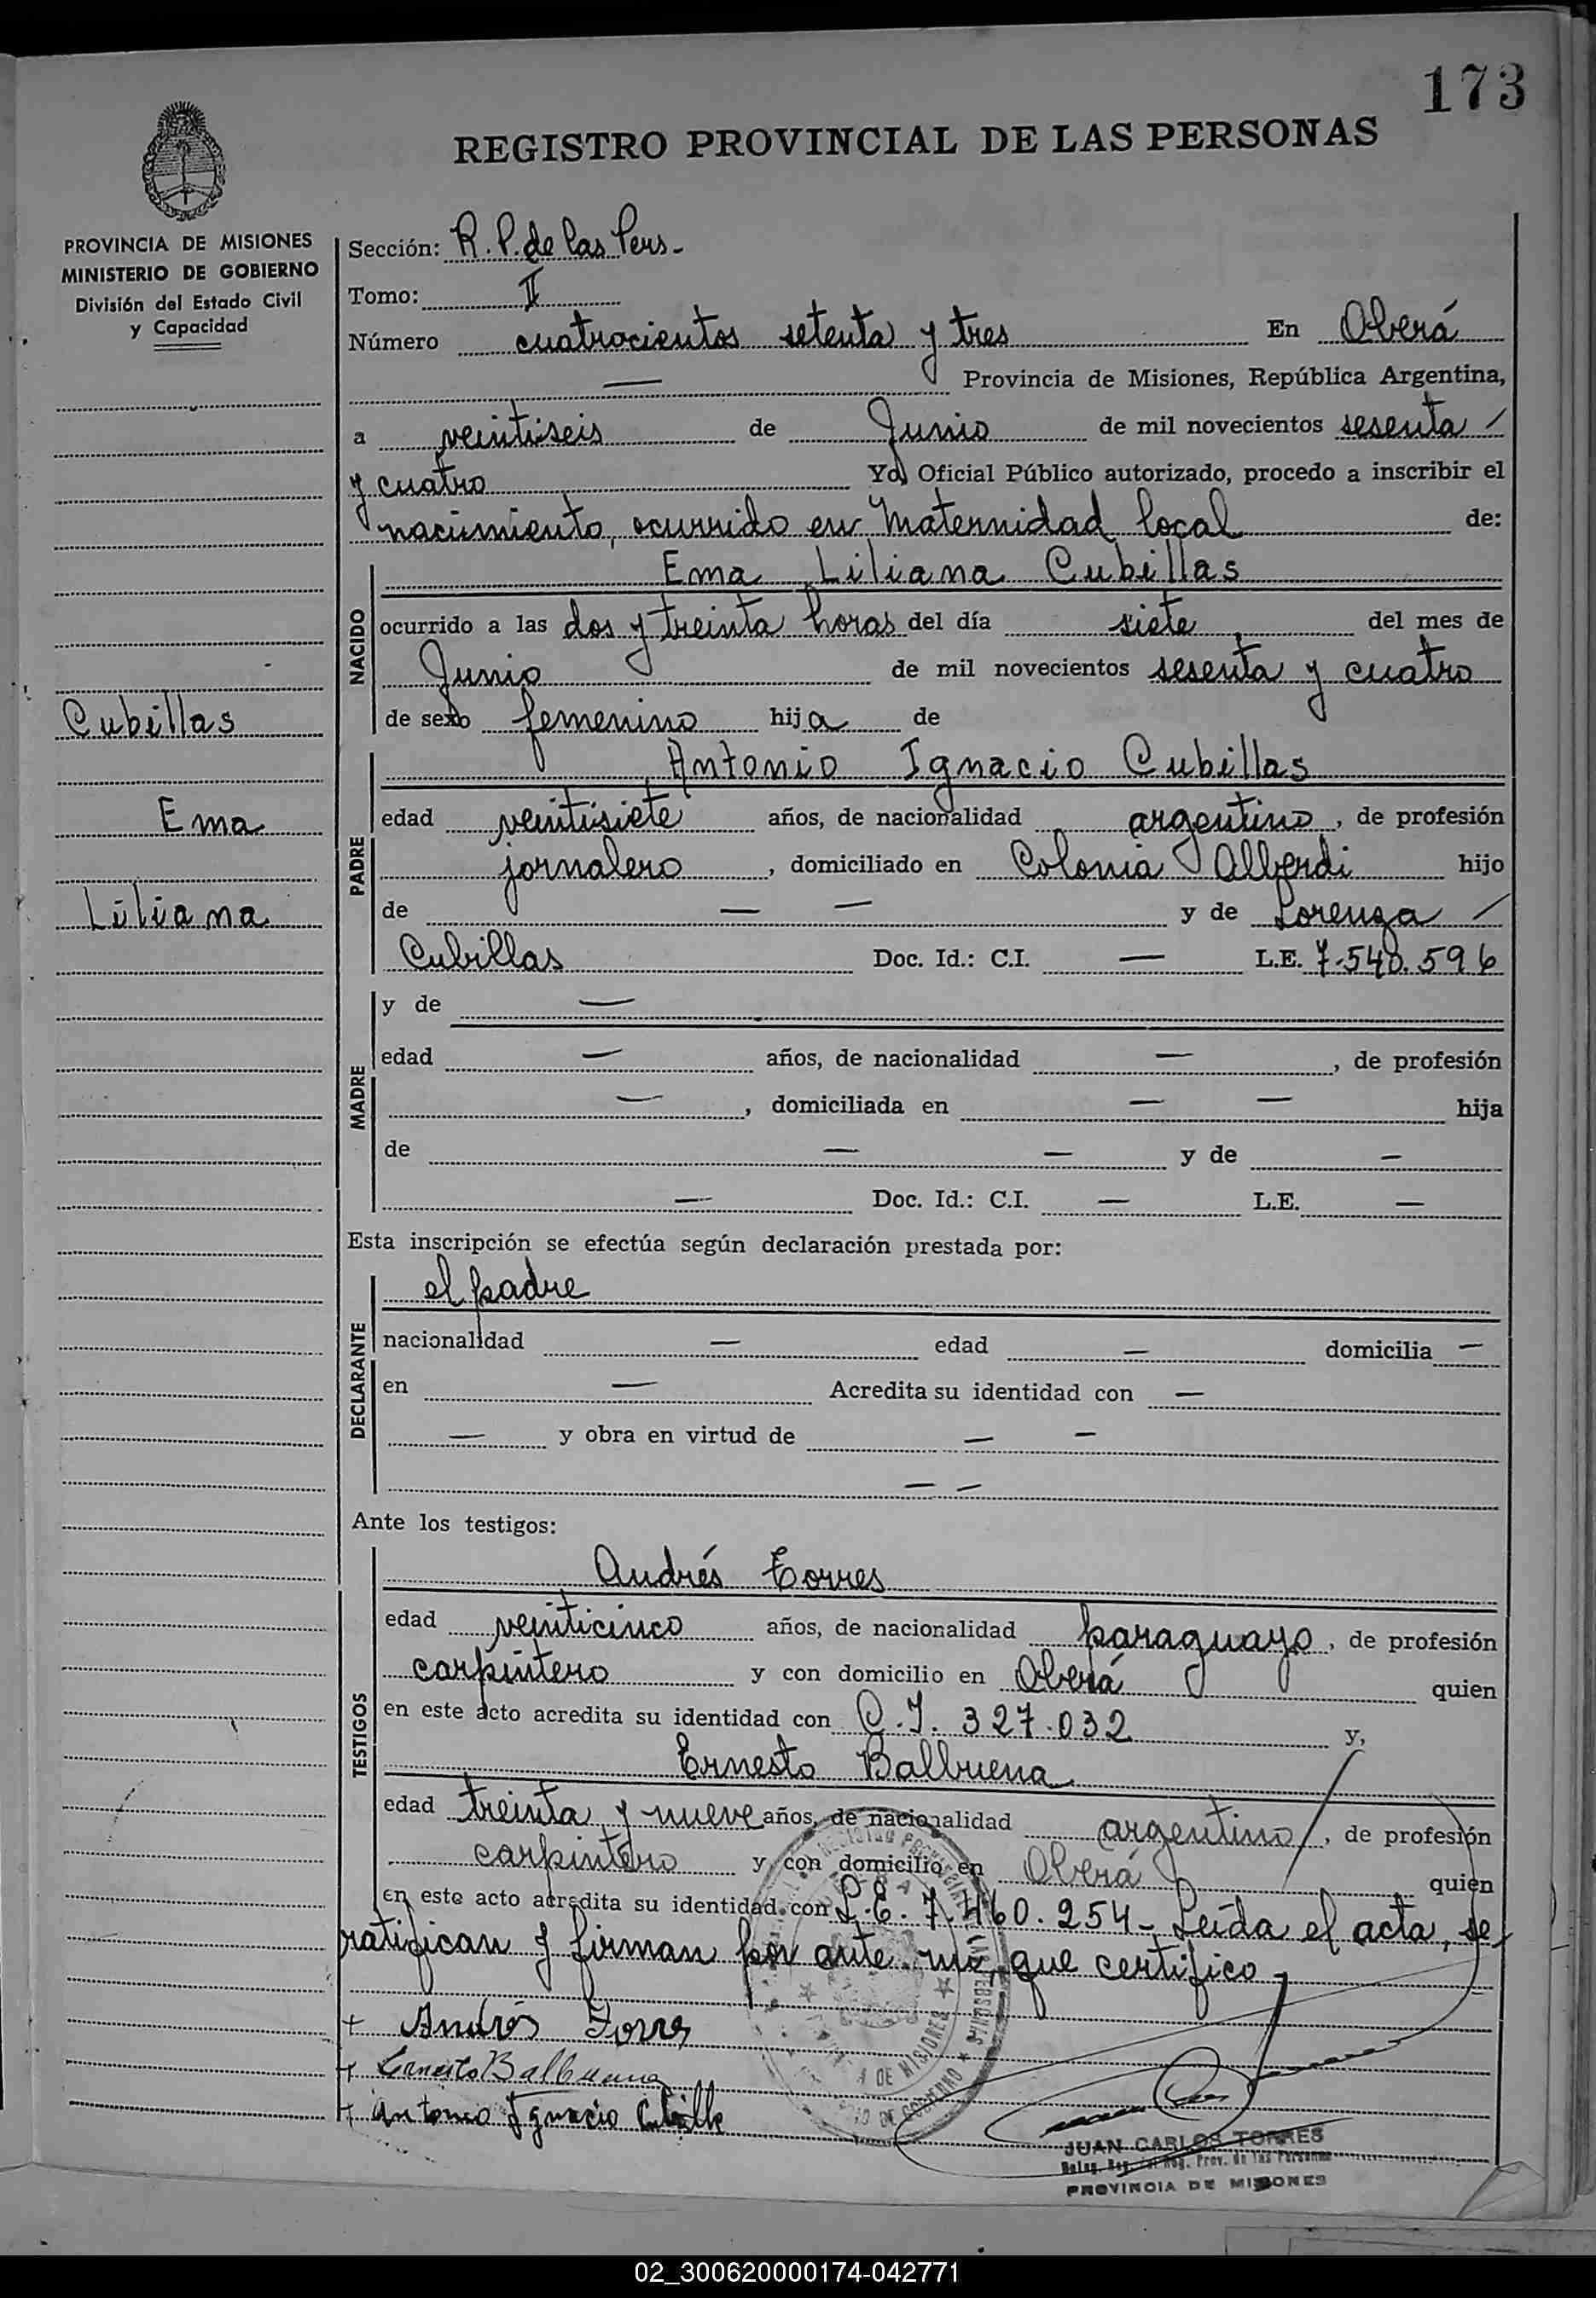 173
REGISTRO PROVINCIAL DE LAS PERSONAS
PROVINCIA DE MISIONES
MINISTERIO DE GOBIERNO
División del Estado Civil
y Capacidad
Sección: R. P. de las Pers-
Tomo: II
Número cuatrocientos setenta y tres En Oberá
— Provincia de Misiones, República Argentina,
a veintiseis de Junio de mil novecientos sesenta /
y cuatro Yo, Oficial Público autorizado, procedo a inscribir el
nacimiento, ocurrido en Maternidad local de:
NACIDO
Ema Liliana Cubillas
ocurrido a las dos y treinta horas del día siete del mes de
Junio de mil novecientos sesenta y cuatro
de sexo femenino hija de
Cubillas
Ema
Liliana
PADRE
Antonio Ignacio Cubillas
edad veintisiete años, de nacionalidad argentino, de profesión
jornalero, domiciliado en Colonia Alberdi hijo
de — — y de Lorenza /
Cubillas Doc. Id.: C.I. — L.E. 7.540.596
MADRE
y de —
edad — años, de nacionalidad —, de profesión
—, domiciliada en — — hija
de — — y de —
— Doc. Id.: C.I. — L.E. —
Esta inscripción se efectúa según declaración prestada por:
DECLARANTE
el padre
nacionalidad — edad — domicilia —
en — Acredita su identidad con —
— y obra en virtud de — —
— —
Ante los testigos:
TESTIGOS
Andrés Torres
edad veinticinco años, de nacionalidad paraguayo, de profesión
carpintero y con domicilio en Oberá quien
en este acto acredita su identidad con C.I. 327.032 y,
Ernesto Balbuena
edad treinta y nueve años, de nacionalidad argentino, de profesión
carpintero y con domicilio en Oberá quien
en este acto acredita su identidad con L.E. 7.460.254- Leída el acta, se
ratifican y firman por ante mi, que certifico-
+ Andrés Torres
+ Ernesto Balbuena
+ Antonio Ignacio
DE MISIONES
JUAN CARLOS TORRES
Reg. Prov. de las Personas
PROVINCIA DE MISIONES
02_300620000174-042771